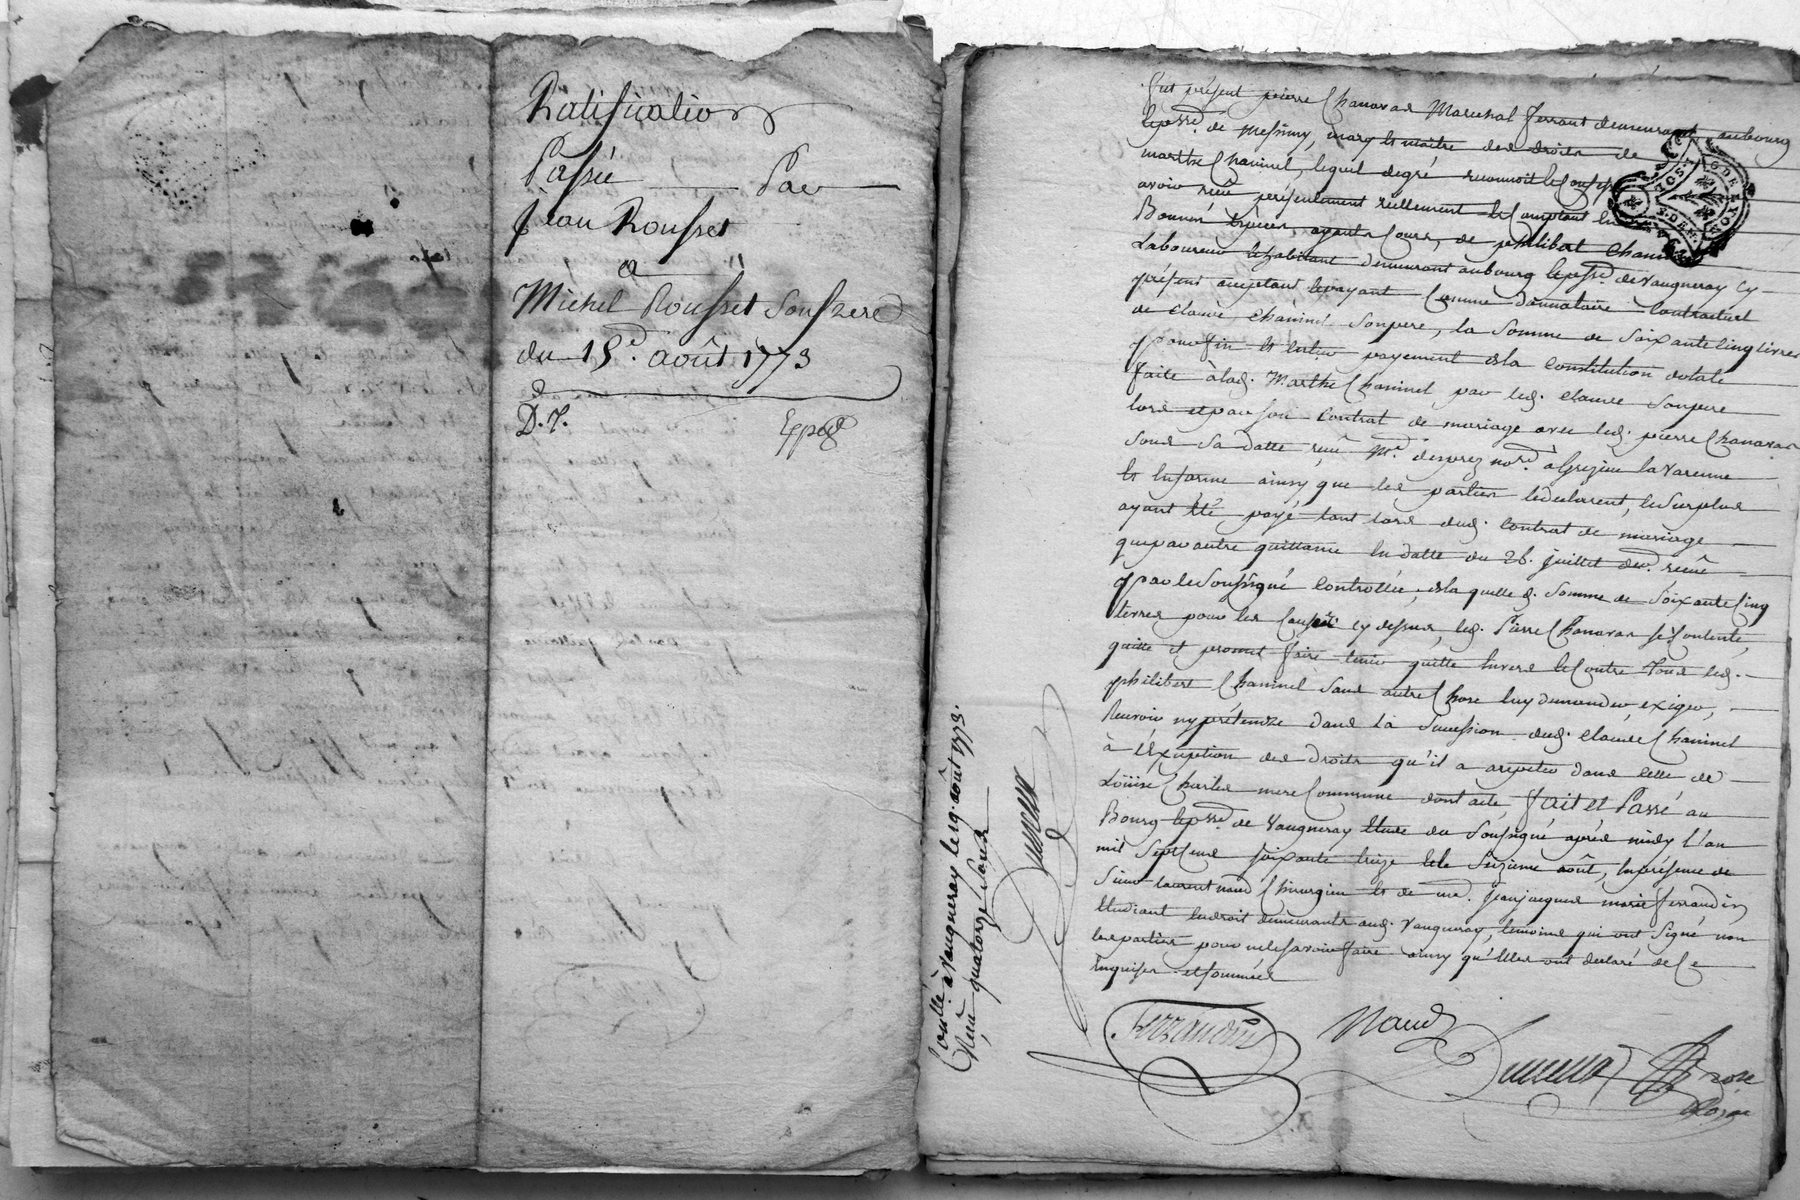 Ratification
Passée Par
Jean Rousset
a
Michel Rousset Son frere
du 15e. août 1773
D. J.
Exped
fut présent pierre Chanavas Marechal ferrant demeurant au bourg
& poisse. de Messimy, mary & maître des droits de
marthe Chaninel, lequel degré reconnoit & Confesse
avoir reçeu présentement réellement & Comptant En
Bonnes Espèces, ayants Cours, de philibert Chaninel
Laboureur & habitant demeurant au bourg & poisse. de Vaugneray Cy
présent acceptant & payant Comme donnataire Contractuel
de Claude Chaninel Son pere, la Somme de Soixante Cinq livres
pour fin & Entier payement de la Constitution dotale
faite à lad. Marthe Chaninel par led. Claude Son pere
lors et par Son Contrat de mariage avec led. pierre Chanavas
Sous Sa datte, reçu Me. no.re a Grezieu la Varenne
& En forme ainsy que les parties le declarent, le Surplus
ayant Eté payé tant lors dud. Contrat de mariage
que par autre quittance En datte du 28. juillet der. reçeue
par le Soussigné Controllée, de la quelle d. Somme de Soixante Cinq
livres pour les Causes Cy dessus, led. Pierre Chanavas se Contente,
quitte et promet faire tenir quitte Envers & Contre Tous led.
philibert Chaninel Sans autre Chose luy demander, exiger,
Recevoir ny prétendre dans la Succession dud. Claude Chaninel
à l'Exception des droits qu'il a a repeter dans Celle de
Loüise Charles mere Commune dont acte, fait et Passé au
Bourg & poisse. de Vaugneray Etude du Soussigné après midy L'an
mil Sept Cent soixante treize & le Seizieme août, En présence de
Sieur laurent naud Chirurgien & de me. Jean jacques marie ferrandin
Etudiant En droit demeurants aud. Vaugneray, temoins qui ont Signé non
les parties pour ne le Savoir faire ainsy qu'Elles ont declaré de Ce
Enquises et Sommées
ferrandin Naud
Conllé à Vaugneray le 19. août 1773.
Reçu quatorze Sous